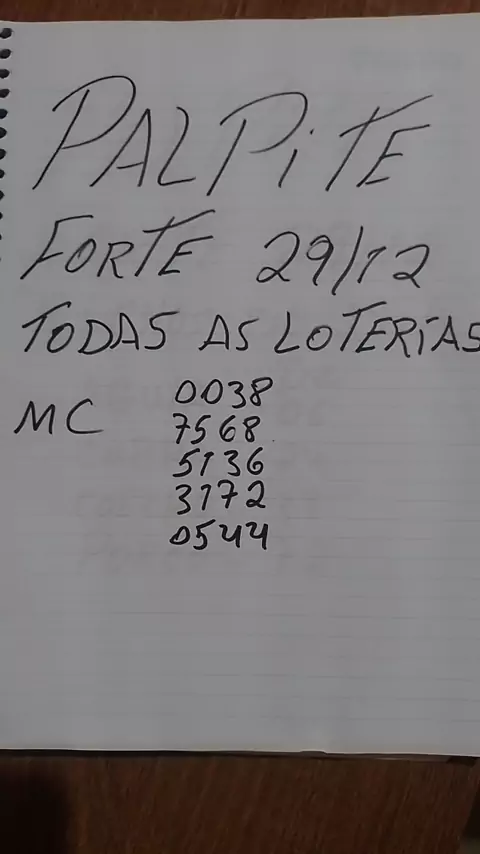 PALPiTE
FORTE 29/12
TODAS AS LOTERIAS
MC 0038
7568
5136
3172
0544